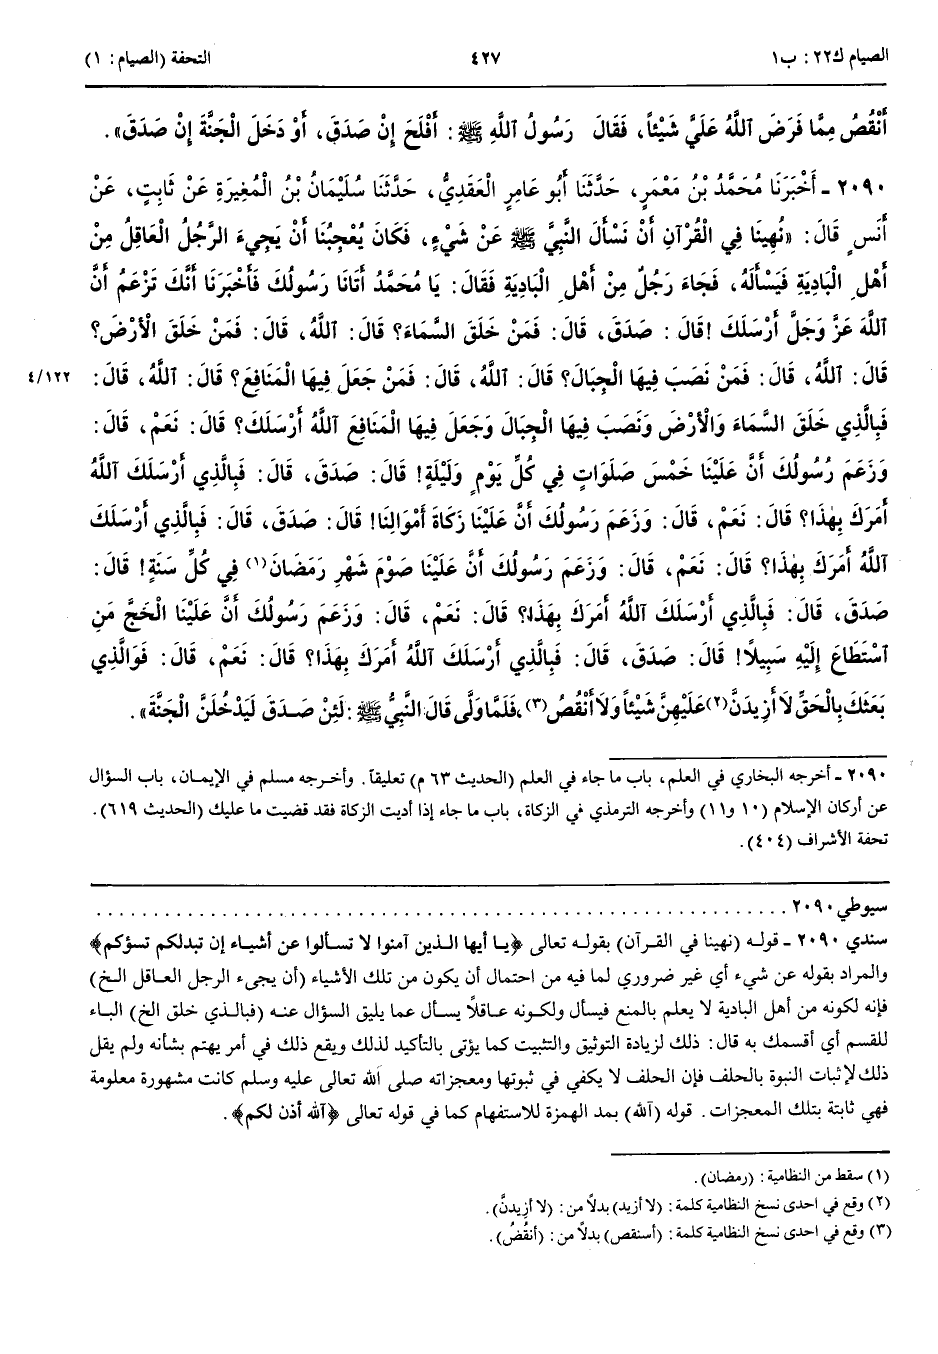 الصيام ك٢٢: ب١ ٤٢٧ التحفة (الصيام: ١)
أَنْقُصُ مِمَّا فَرَضَ اللَّهُ عَلَيَّ شَيْئاً، فَقَالَ رَسُولُ اللَّهِ ﷺ: أَفْلَحَ إِن صَدَقَ، أَوْ دَخَلَ الْجَنَّةَ إِنْ صَدَقَ».
٢٠٩٠ ـ أَخْبَرَنَا مُحَمَّدُ بْنُ مَعْمَرٍ، حَدَّثَنَا أَبُو عَامِرٍ الْعَقَدِيُّ، حَدَّثَنَا سُلَيْمَانُ بْنُ الْمُغِيرَةِ عَنْ ثَابِتٍ، عَنْ
أَنَسٍ قَالَ: «نُهِينَا فِي الْقُرْآنِ أَنْ نَسْأَلَ النَّبِيَّ ﷺ عَنْ شَيْءٍ، فَكَانَ يُعْجِبُنَا أَنْ يَجِيءَ الرَّجُلُ الْعَاقِلُ مِنْ
أَهْلِ الْبَادِيَةِ فَيَسْأَلَهُ، فَجَاءَ رَجُلٌ مِنْ أَهْلِ الْبَادِيَةِ فَقَالَ: يَا مُحَمَّدُ أَتَانَا رَسُولُكَ فَأَخْبَرَنَا أَنَّكَ تَزْعَمُ أَنَّ
اللَّهَ عَزَّ وَجَلَّ أَرْسَلَكَ! قَالَ: صَدَقَ، قَالَ: فَمَنْ خَلَقَ السَّمَاءَ؟ قَالَ: اللَّهُ، قَالَ: فَمَنْ خَلَقَ الْأَرْضَ؟
قَالَ: اللَّهُ، قَالَ: فَمَنْ نَصَبَ فِيهَا الْجِبَالَ؟ قَالَ: اللَّهُ، قَالَ: فَمَنْ جَعَلَ فِيهَا الْمَنَافِعَ؟ قَالَ: اللَّهُ، قَالَ: ٤/١٢٢
فَبِالَّذِي خَلَقَ السَّمَاءَ وَالْأَرْضَ وَنَصَبَ فِيهَا الْجِبَالَ وَجَعَلَ فِيهَا الْمَنَافِعَ اللَّهُ أَرْسَلَكَ؟ قَالَ: نَعَمْ، قَالَ:
وَزَعَمَ رَسُولُكَ أَنَّ عَلَيْنَا خَمْسَ صَلَوَاتٍ فِي كُلِّ يَوْمٍ وَلَيْلَةٍ! قَالَ: صَدَقَ، قَالَ: فَبِالَّذِي أَرْسَلَكَ اللَّهُ
أَمَرَكَ بِهٰذَا؟ قَالَ: نَعَمْ، قَالَ: وَزَعَمَ رَسُولُكَ أَنَّ عَلَيْنَا زَكَاةَ أَمْوَالِنَا! قَالَ: صَدَقَ، قَالَ: فَبِالَّذِي أَرْسَلَكَ
اللَّهُ أَمَرَكَ بِهٰذَا؟ قَالَ: نَعَمْ، قَالَ: وَزَعَمَ رَسُولُكَ أَنَّ عَلَيْنَا صَوْمَ شَهْرِ رَمَضَانَ(١) فِي كُلِّ سَنَةٍ! قَالَ:
صَدَقَ، قَالَ: فَبِالَّذِي أَرْسَلَكَ اللَّهُ أَمَرَكَ بِهَذَا؟ قَالَ: نَعَمْ، قَالَ: وَزَعَمَ رَسُولُكَ أَنَّ عَلَيْنَا الْحَجَّ مَنِ
اسْتَطَاعَ إِلَيْهِ سَبِيلًا! قَالَ: صَدَقَ، قَالَ: فَبِالَّذِي أَرْسَلَكَ اللَّهُ أَمَرَكَ بِهَذَا؟ قَالَ: نَعَمْ، قَالَ: فَوَالَّذِي
بَعَثَكَ بِالْحَقِّ لَا أَزِيدَنَّ(٢) عَلَيْهِنَّ شَيْئاً وَلَا أَنْقُصُ(٣)، فَلَمَّا وَلَّى قَالَ النَّبِيُّ ﷺ: لَئِنْ صَدَقَ لَيَدْخُلَنَّ الْجَنَّةَ».
٢٠٩٠ ـ أخرجه البخاري في العلم، باب ما جاء في العلم (الحديث ٦٣ م) تعليقاً. وأخرجه مسلم في الإيمان، باب السؤال
عن أركان الإسلام (١٠ و١١) وأخرجه الترمذي في الزكاة، باب ما جاء إذا أديت الزكاة فقد قضيت ما عليك (الحديث ٦١٩).
تحفة الأشراف (٤٠٤).
سيوطي ٢٠٩٠ ..........................................................
سندي ٢٠٩٠ ـ قوله (نهينا في القرآن) بقوله تعالى ﴿يا أيها الذين آمنوا لا تسألوا عن أشياء إن تبدلكم تسؤكم﴾
والمراد بقوله عن شيء أي غير ضروري لما فيه من احتمال أن يكون من تلك الأشياء (أن يجيء الرجل العاقل الخ)
فإنه لكونه من أهل البادية لا يعلم بالمنع فيسأل ولكونه عاقلاً يسأل عما يليق السؤال عنه (فبالذي خلق الخ) الباء
للقسم أي أقسمك به قال: ذلك لزيادة التوثيق والتثبيت كما يؤتى بالتأكيد لذلك ويقع ذلك في أمر يهتم بشأنه ولم يقل
ذلك لإثبات النبوة بالحلف فإن الحلف لا يكفي في ثبوتها ومعجزاته صلى الله تعالى عليه وسلم كانت مشهورة معلومة
فهي ثابتة بتلك المعجزات. قوله (آلله) بمد الهمزة للاستفهام كما في قوله تعالى ﴿آلله أذن لكم﴾.
(١) سقط من النظامية: (رمضان).
(٢) وقع في احدى نسخ النظامية كلمة: (لا أزيد) بدلاً من: (لا أزيدنَّ).
(٣) وقع في احدى نسخ النظامية كلمة: (أستنقص) بدلاً من: (أنقُصُ).